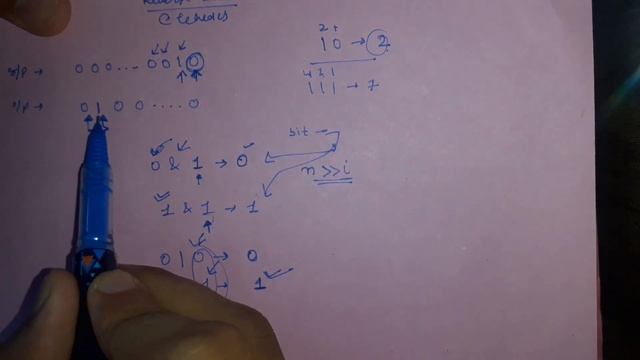 2 1
10 → 2
i/p → 0 0 0 ... 0 0 1 0
4 2 1
111 → 7
o/p → 0 1 0 0 .... 0
bit
0 & 1 → 0
n >> i
1 & 1 → 1
0 | 0 → 0
1 → 1